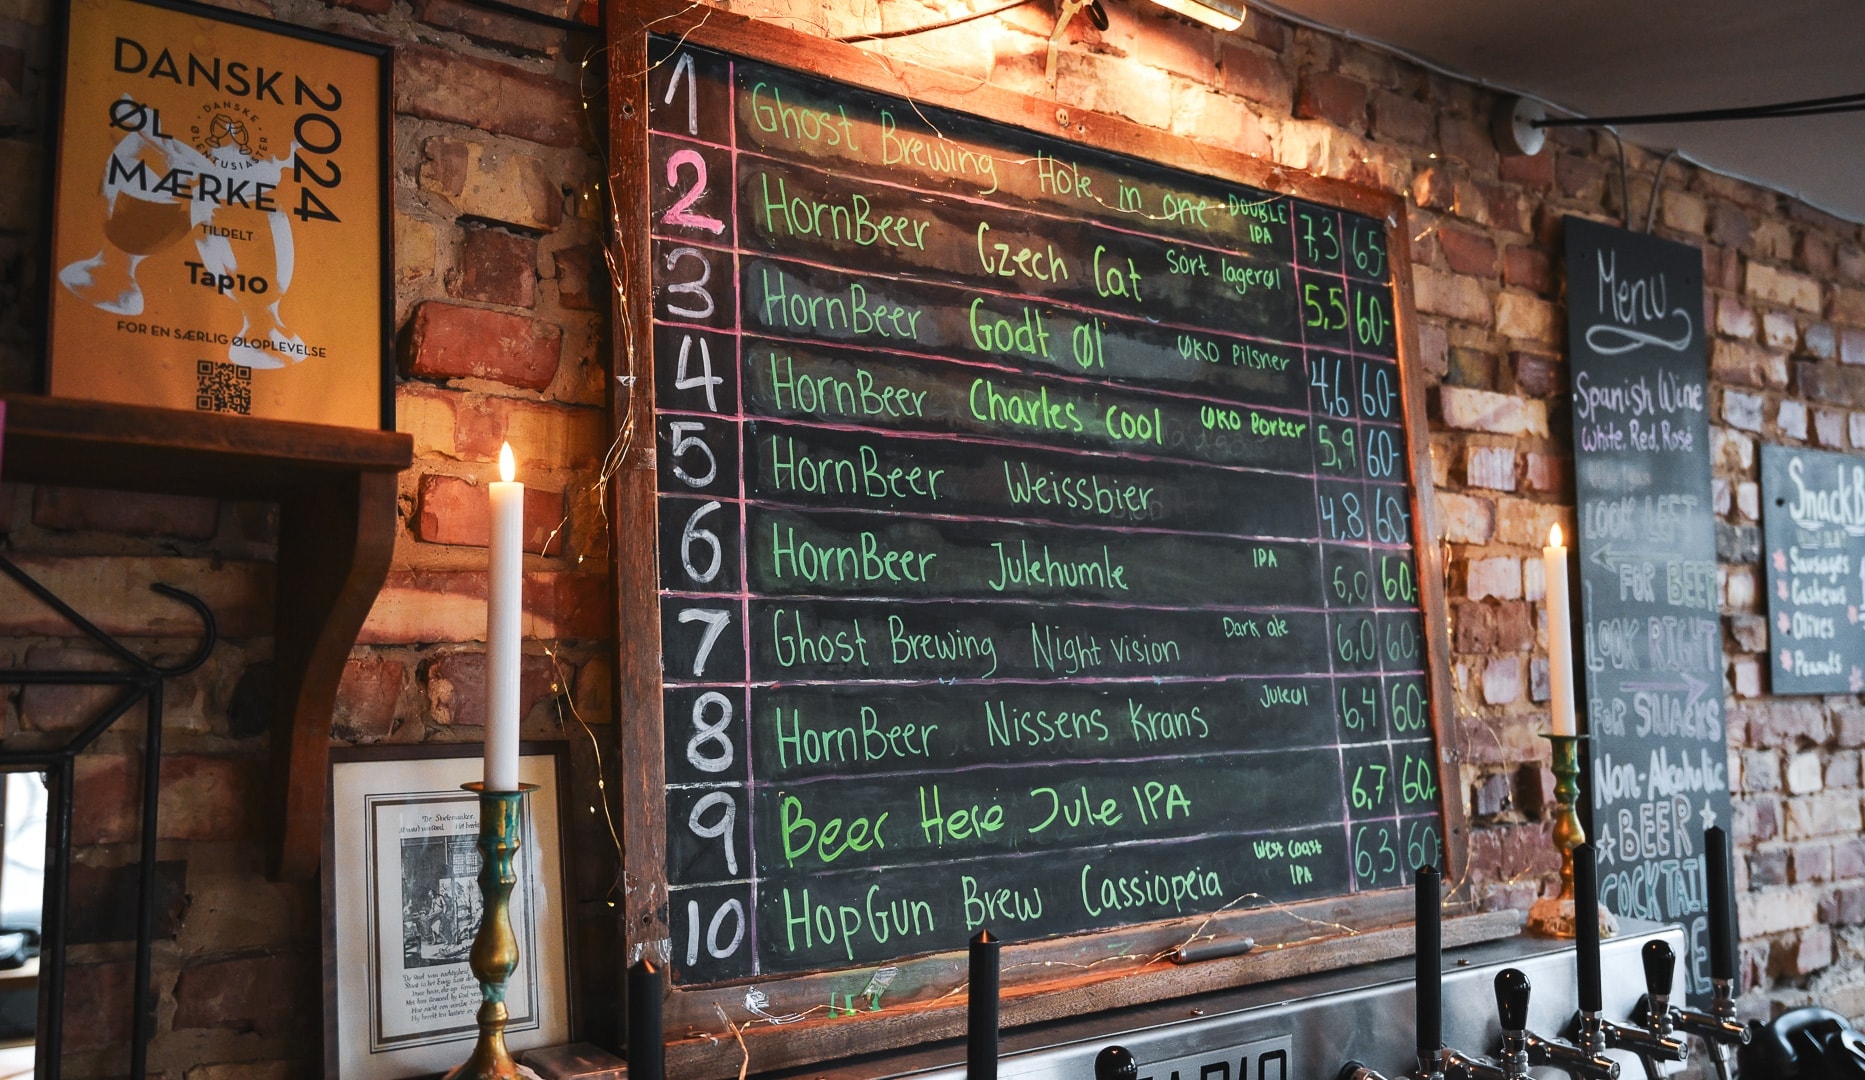 DANSK
ØL
MÆRKE
2024
DANSKE ØLENTUSIASTER
TILDELT
Tap10
FOR EN SÆRLIG ØLOPLEVELSE
1 Ghost Brewing Hole in one DOUBLE IPA 7,3 65-
2 HornBeer Czech Cat Sort lagerøl 5,5 60-
3 HornBeer Godt Øl ØKO Pilsner 4,6 60-
4 HornBeer Charles Cool ØKO Porter 5,9 60-
5 HornBeer Weissbier 4,8 60-
6 HornBeer Julehumle IPA 6,0 60-
7 Ghost Brewing Night vision Dark ale 6,0 60-
8 HornBeer Nissens Krans Juleøl 6,4 60-
9 Beer Here Jule IPA 6,7 60-
10 HopGun Brew Cassiopeia West Coast IPA 6,3 60-
Menu
Spanish Wine
White, Red, Rosé
LOOK LEFT
FOR BEER
LOOK RIGHT
FOR SNACKS
Non-Alcoholic
BEER
COCKTAIL
Snack
Sausages
Cashews
Olives
Peanuts